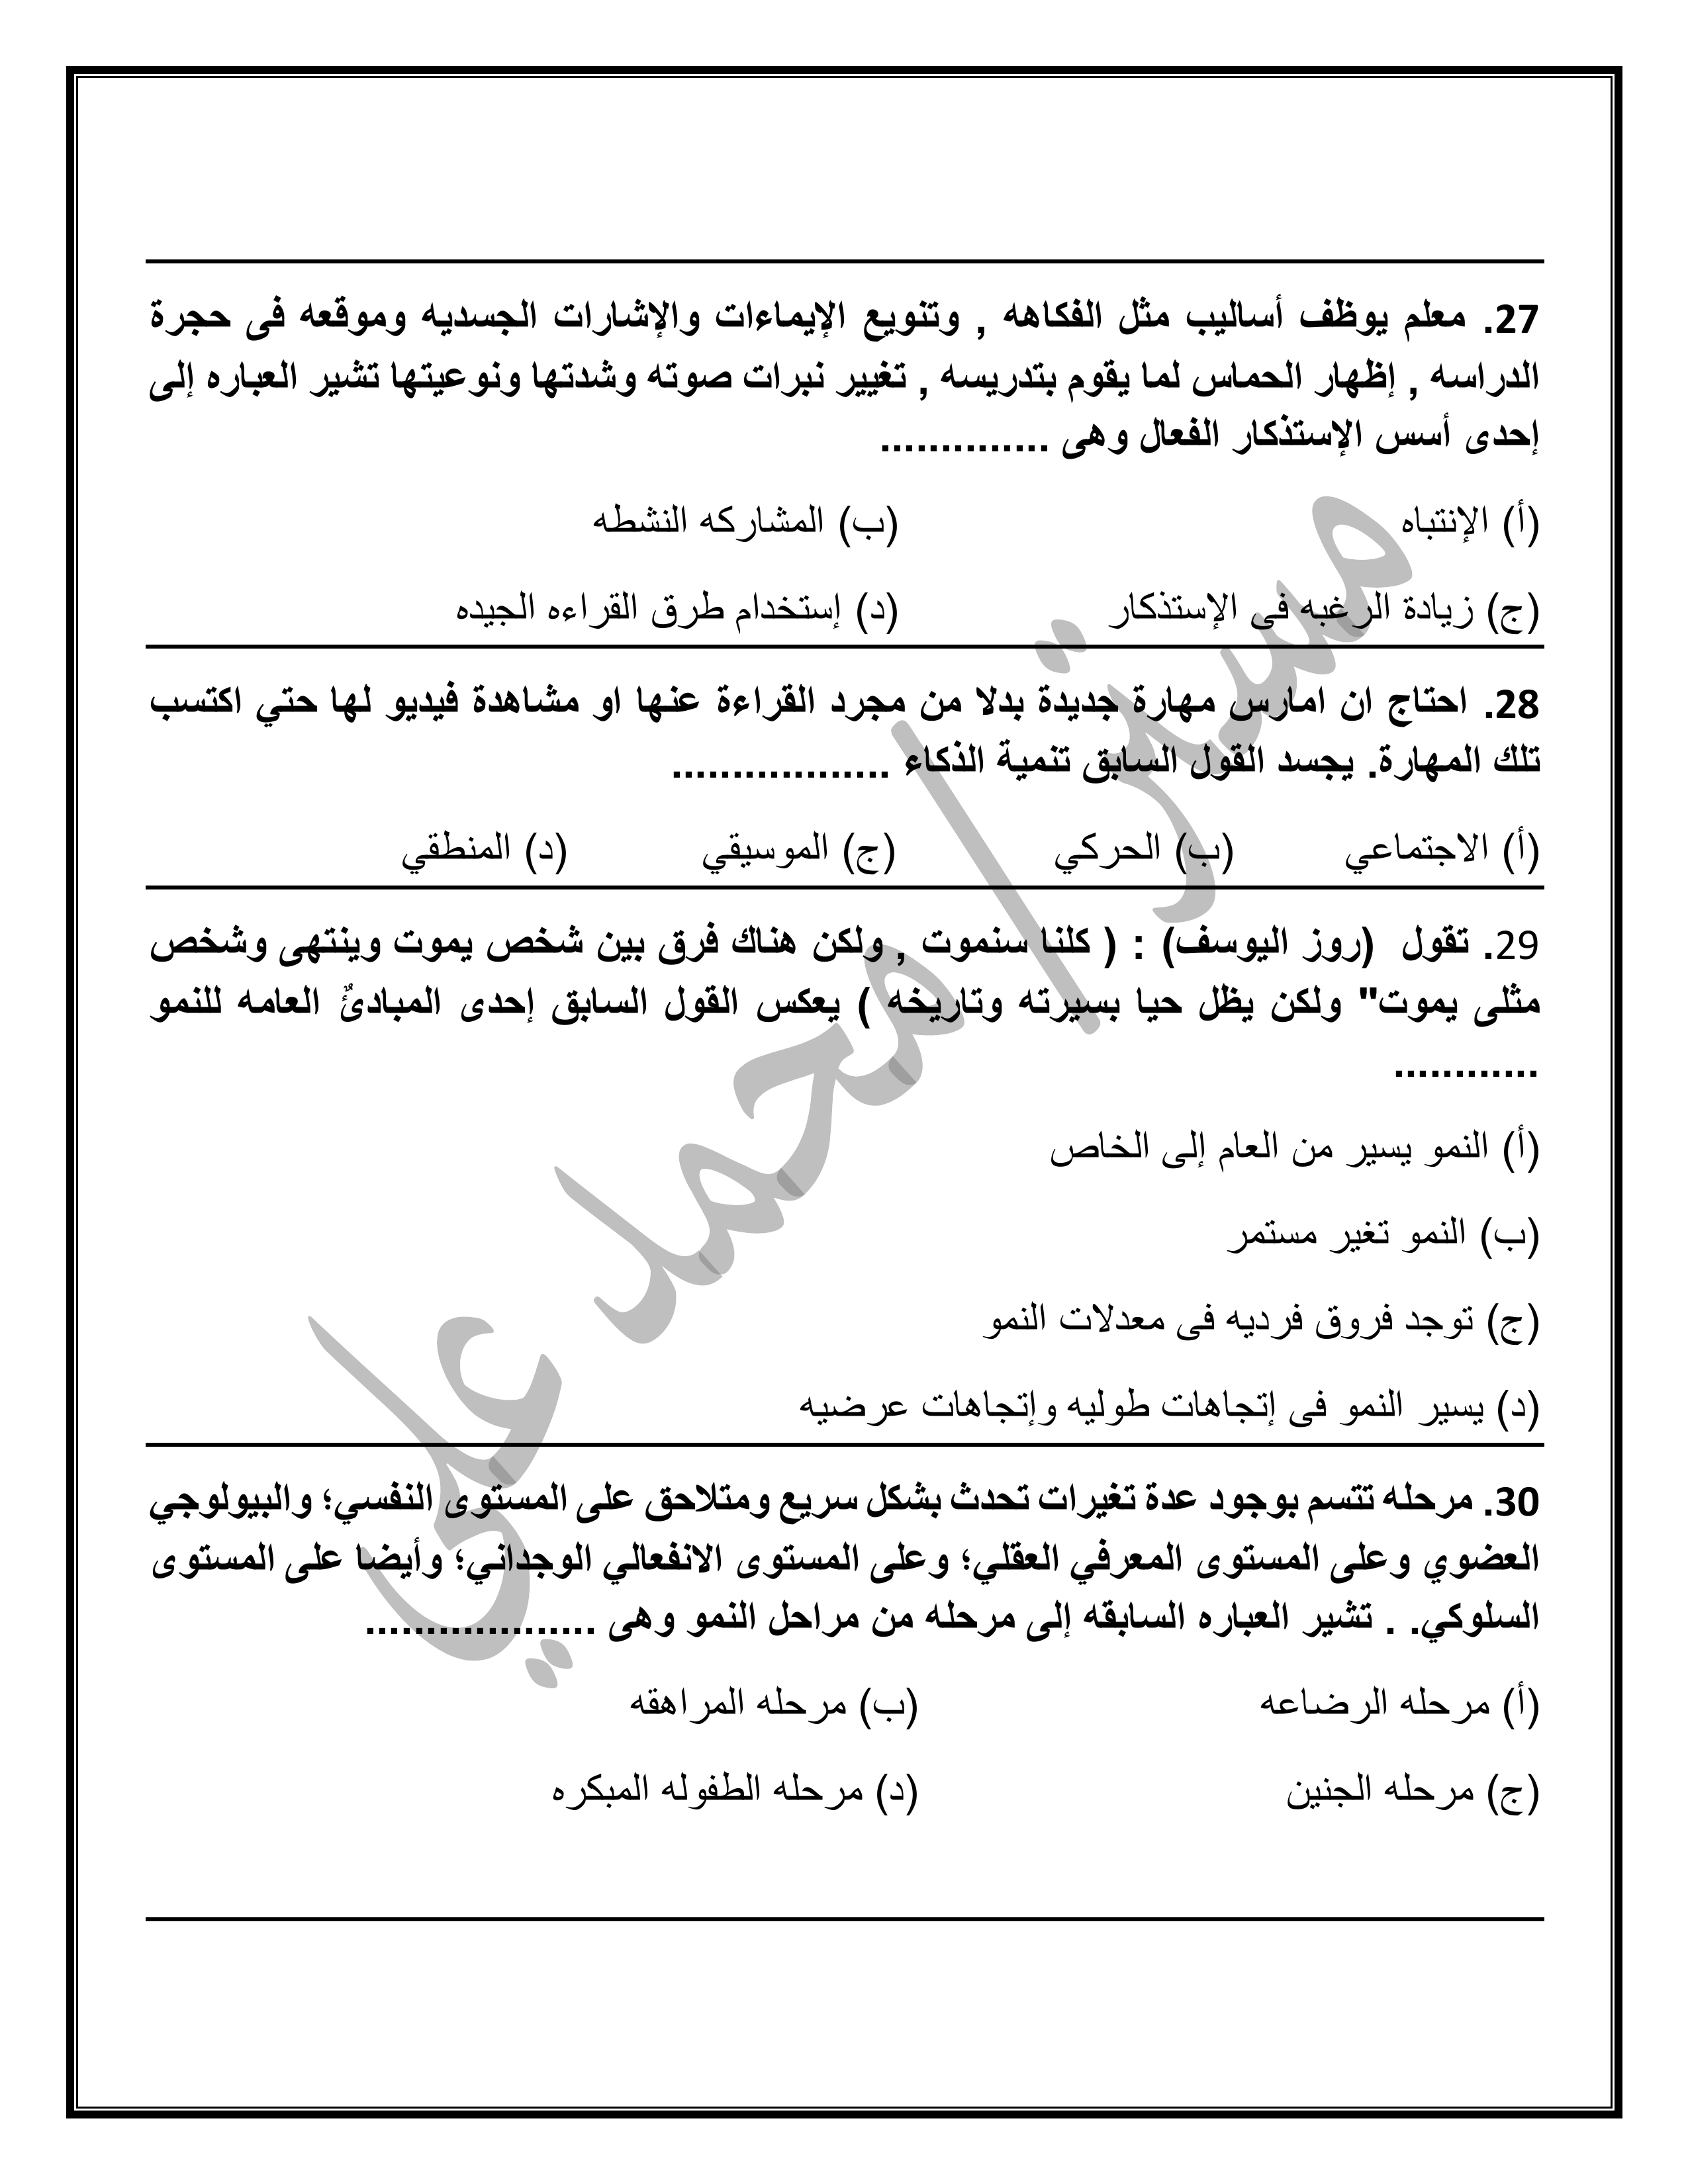 27. معلم يوظف أساليب مثل الفكاهه , وتنويع الإيماءات والإشارات الجسديه وموقعه فى حجرة
الدراسه , إظهار الحماس لما يقوم بتدريسه , تغيير نبرات صوته وشدتها ونوعيتها تشير العباره إلى
إحدى أسس الإستذكار الفعال وهى ..............
(أ) الإنتباه (ب) المشاركه النشطه
(ج) زيادة الرغبه فى الإستذكار (د) إستخدام طرق القراءه الجيده
28. احتاج ان امارس مهارة جديدة بدلا من مجرد القراءة عنها او مشاهدة فيديو لها حتي اكتسب
تلك المهارة. يجسد القول السابق تنمية الذكاء ..................
(أ) الاجتماعي (ب) الحركي (ج) الموسيقي (د) المنطقي
29. تقول (روز اليوسف) : ( كلنا سنموت , ولكن هناك فرق بين شخص يموت وينتهى وشخص
مثلى يموت" ولكن يظل حيا بسيرته وتاريخه ) يعكس القول السابق إحدى المبادئٌ العامه للنمو
............
(أ) النمو يسير من العام إلى الخاص
(ب) النمو تغير مستمر
(ج) توجد فروق فرديه فى معدلات النمو
(د) يسير النمو فى إتجاهات طوليه وإتجاهات عرضيه
30. مرحله تتسم بوجود عدة تغيرات تحدث بشكل سريع ومتلاحق على المستوى النفسي؛ والبيولوجي
العضوي وعلى المستوى المعرفي العقلي؛ وعلى المستوى الانفعالي الوجداني؛ وأيضا على المستوى
السلوكي. . تشير العباره السابقه إلى مرحله من مراحل النمو وهى ...................
(أ) مرحله الرضاعه (ب) مرحله المراهقه
(ج) مرحله الجنين (د) مرحله الطفوله المبكره
مستر/ محمد علي